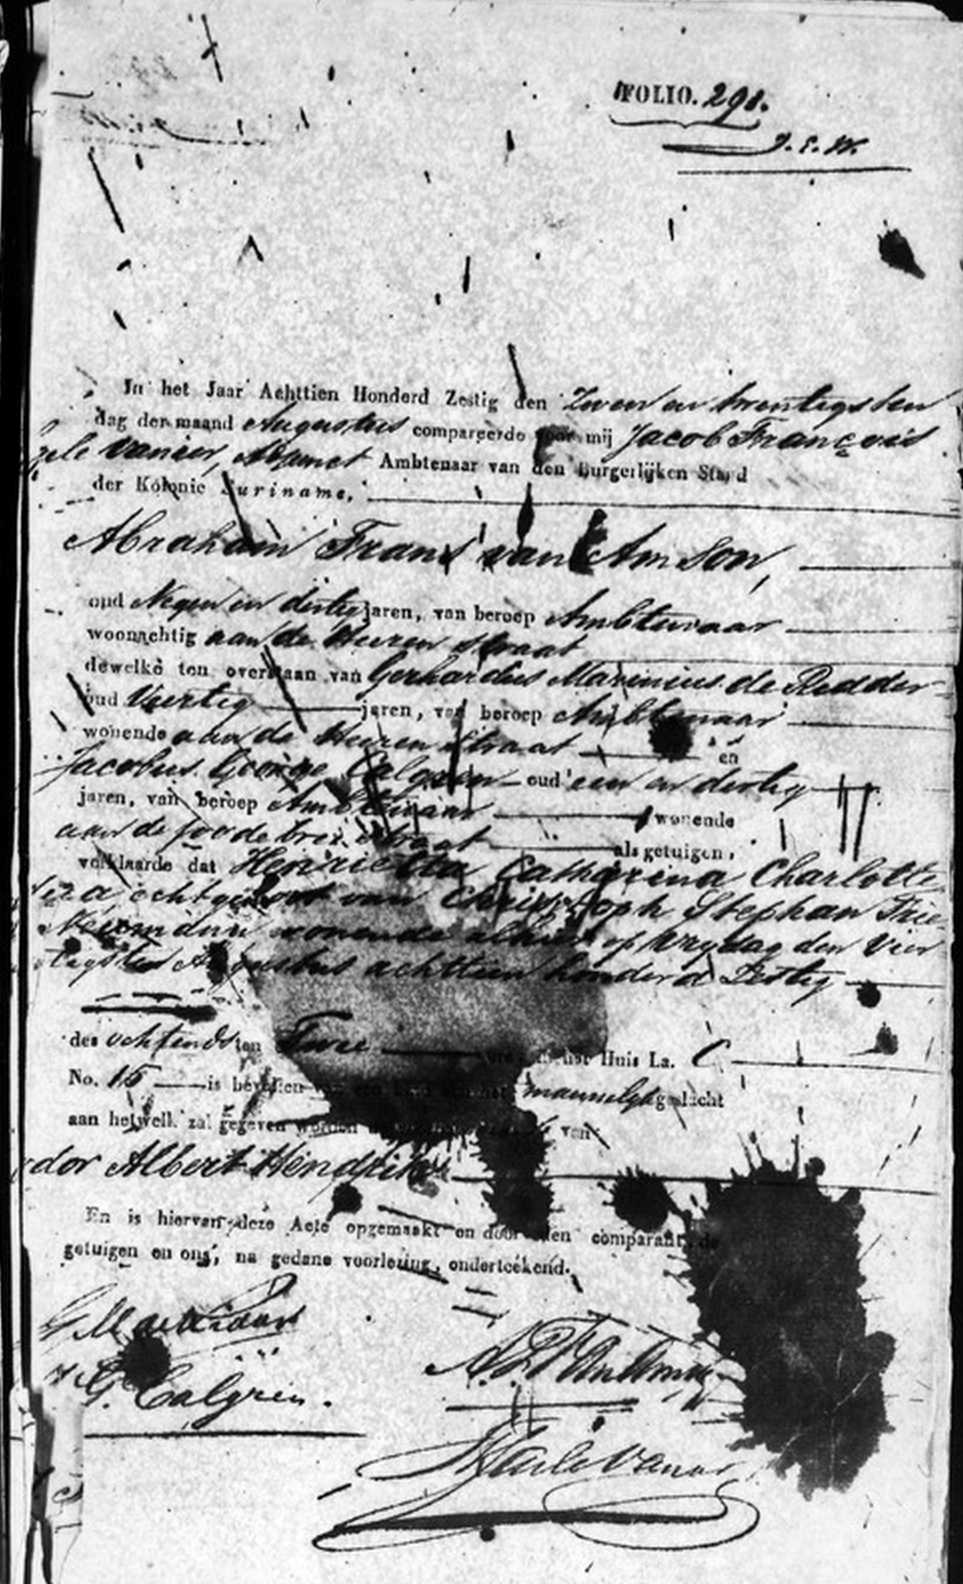 FOLIO. 298.
In het Jaar Achttien Honderd Zestig den Zeven en twentigsten
dag der maand Augustus compareerde voor mij Jacob François
Vanier, Adjunct Ambtenaar van den Burgerlijken Stand
der Kolonie Suriname,
Abraham Frans van Amson,
oud Negen en dertig jaren, van beroep Ambtenaar
woonachtig aan de Heeren straat
dewelke ten overstaan van Gerhardus Marinius de Ridder
oud Veertig jaren, van beroep Ambtenaar
wonende aan de Heeren straat en
Jacobus George Calgren oud een en dertig
jaren, van beroep Ambtenaar wonende
aan de straat als getuigen,
verklaarde dat Henrietta Catharina Charlotte
echtgenoot van Christoph Stephan Frie
wonende alhier op Vrydag den Vier
Augustus achttien honderd Zestig
des ochtends ten Twee ure in het Huis La. C
No. 15 is bevallen van een kind van het mannelyk geslacht
aan hetwelk zal gegeven worden van
dor Albert Hendrik
En is hiervan deze Acte opgemaakt en door den comparant, de
getuigen en ons, na gedane voorlezing, onderteekend.
J G. Calgren.